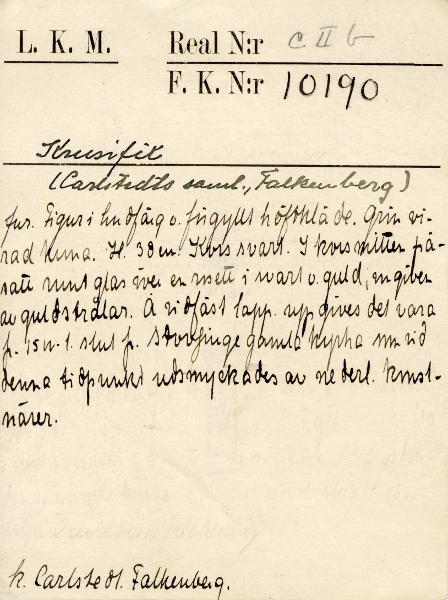 L. K. M. Real N:r C II b
F. K. N:r 10190
Krusifix
(Carlstedts saml., Falkenberg)
fur. Figur i hudfärg o. förgyllt höftkläde. Grön vi-
rad krona. H. 38 cm. Kors svart. I korsmitten på-
satt runt glas över en rosett i svart o. guld, omgiven
av guldstrålar. Å vidfäst lapp. uppgives det vara
fr. 15 n-t. slut fr. gamla kyrka som vid
denna tidpunkt utsmyckades av nederl. konst-
närer.
k. Carlstedt. Falkenberg.